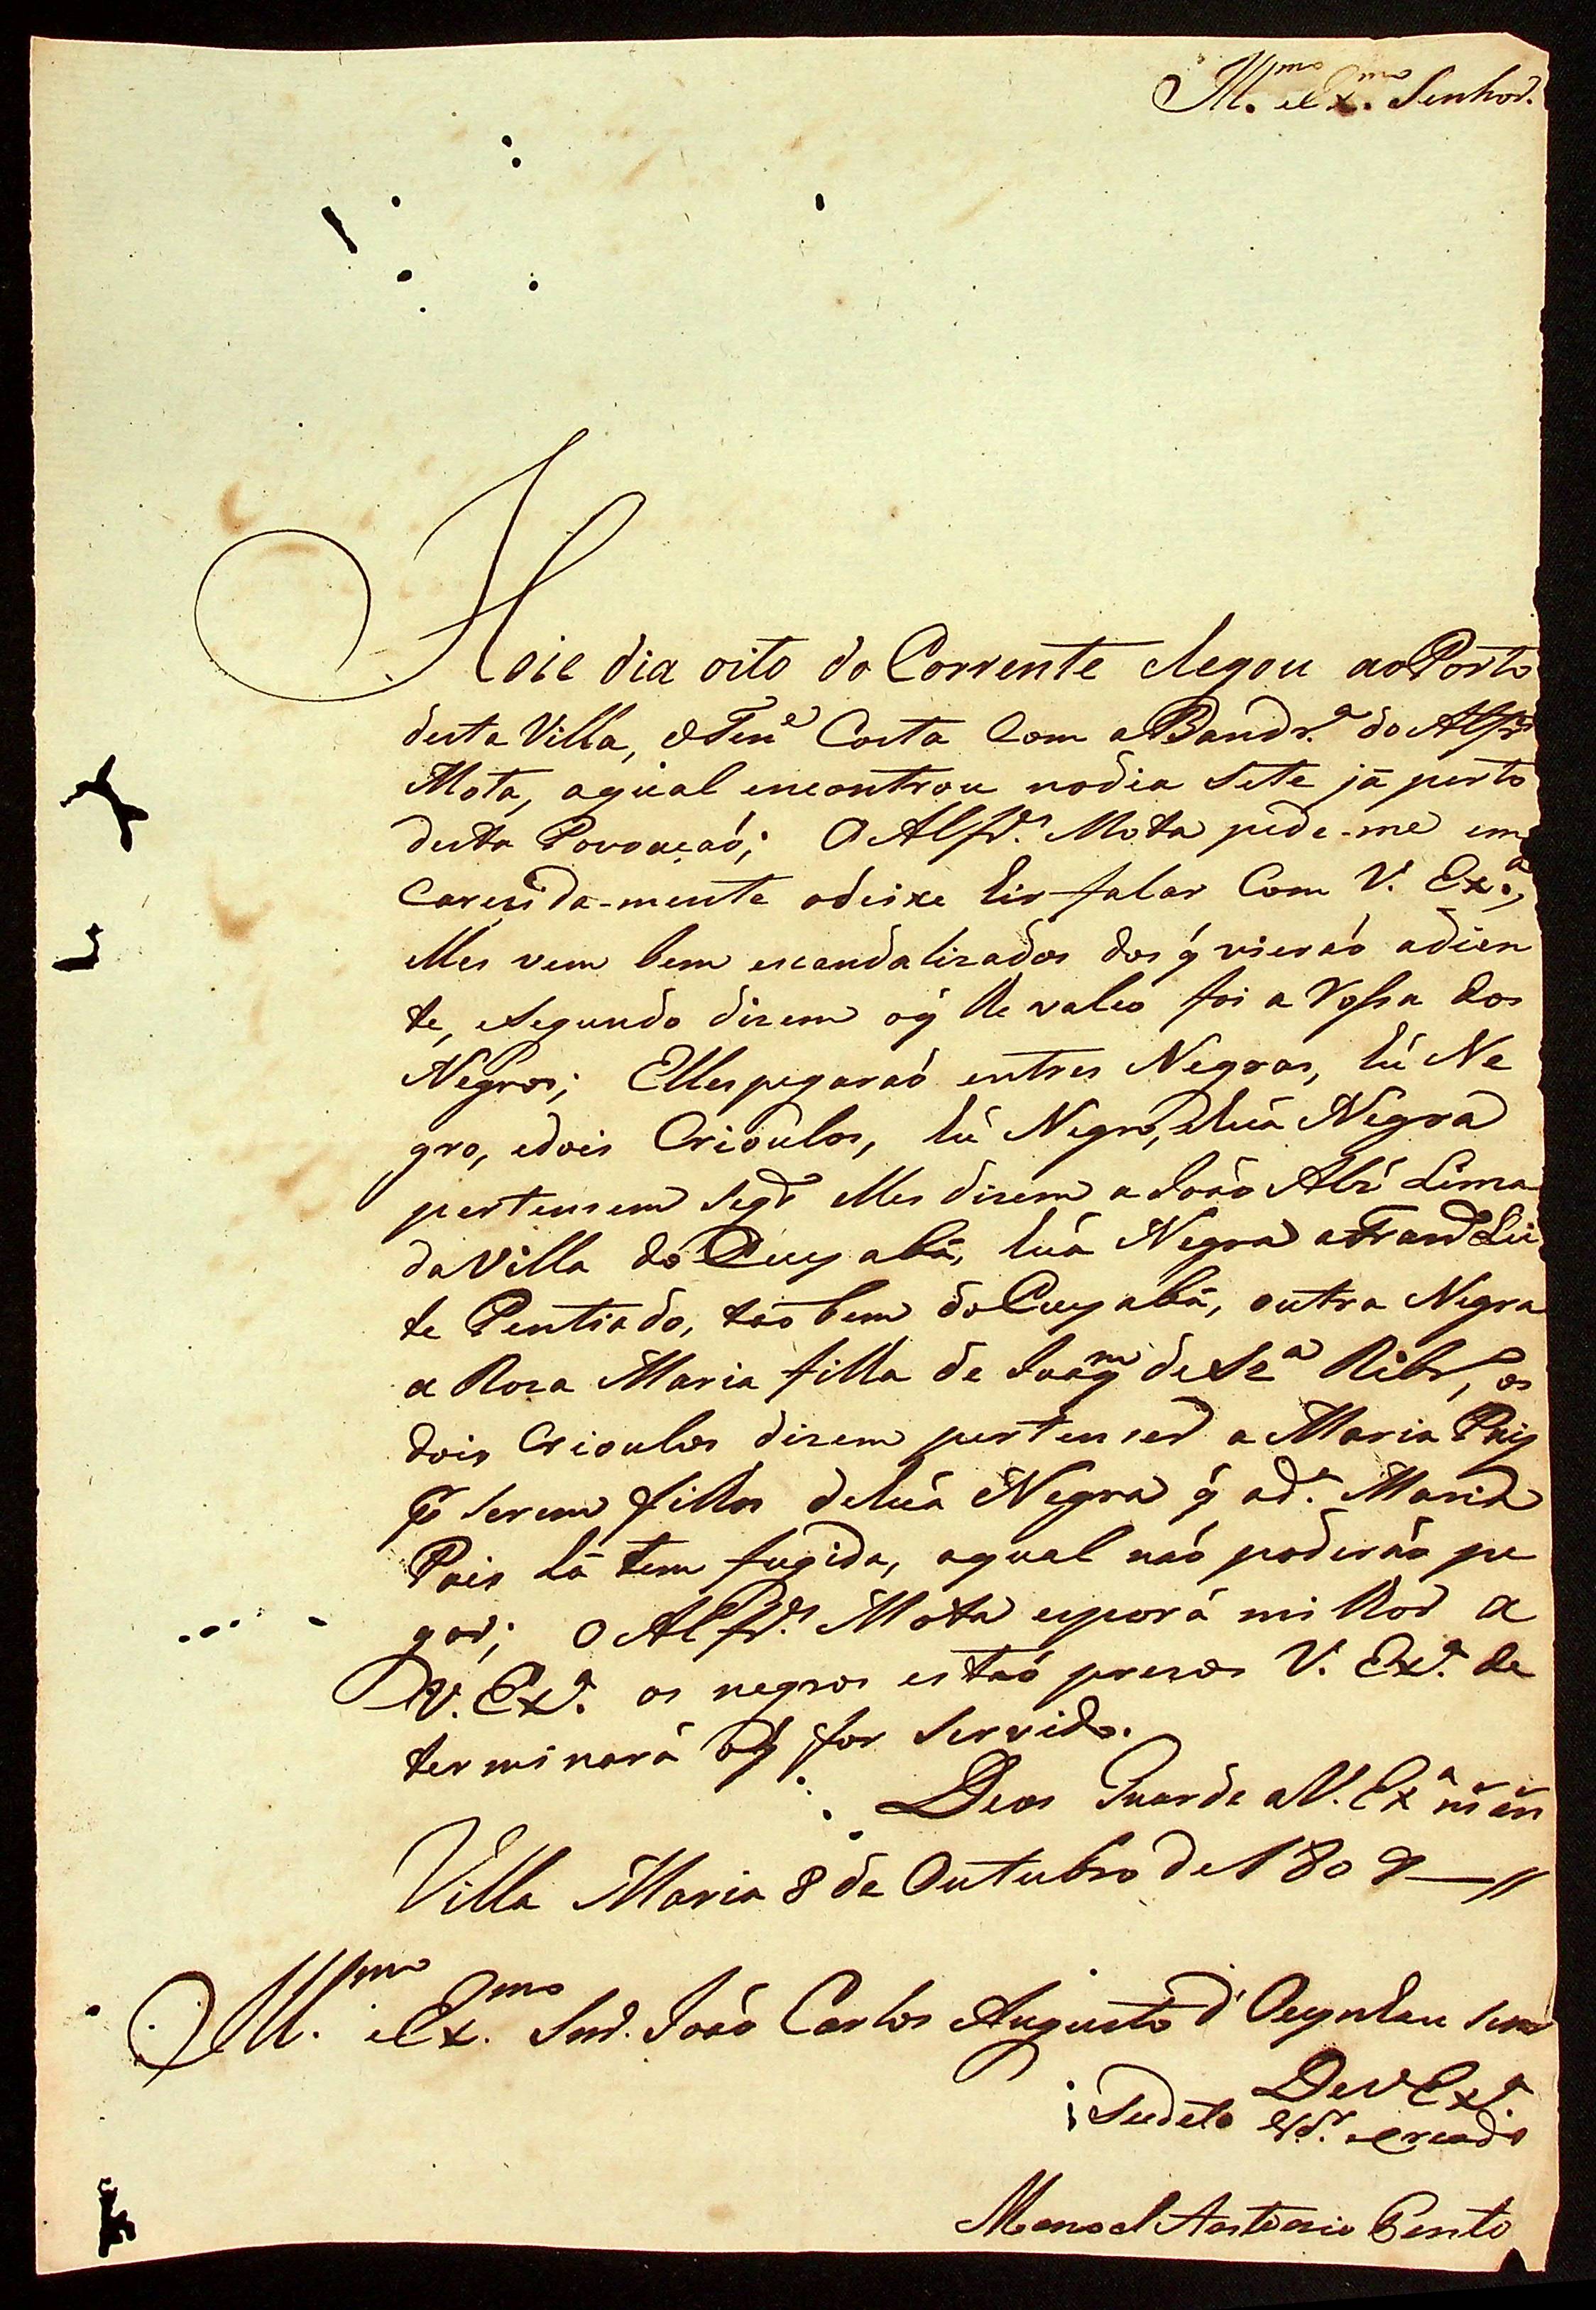 Ill.mo eEx.mo Senhor.
Hoie dia oito do Corrente chegou ao Porto
desta Villa, oTene Costa Com aBandr.a do Alfrs
Mota, aqual encontrou nodia Sete já perto
desta Povoaçaó; O Alfr.s Mota pede-me em
Carecida-mente odeixe hir falar Com V. Ex.a,
elles vem bem escandalizados dos q̃ vieraó adien
te, eSegundo dizem oq̃ lhe valeo foi a Rossa dos
Negros; Elles pegaraó entres Negras, hũ Ne
gro, edois Crioulos, hũ Negro, ehuã Negra
pertensem Segdo elles dizem a João Alz̃ Lima
da Villa do Cuyabá, huã Negra aFranco Lei
te Pentiado, táobem do Cuyabá, outra Negra
a Roza Maria filha de Juaqm de Sza Ribro, os
dois Crioulos dizem pertenser a Maria Pais
pr Serem filhos dehuã Negra q̃ ad.a Maria
Pais lá tem fugida, aqual naó poderáo pe
gar; O Alfr.s Mota esporá milhor a
V. Ex.a os negros estaó prezos V. Ex.a de
terminará oq̃ for Servido.
Deos Guarde aV. Exa ms ans
Villa Maria 8 de Outubro de 1809 —//
Ill.mo eEx.mo Snr. Joaó Carlos Augusto d'Oeynhau sen
DeV Ex.a
Sudeto eVdr. eCreado
Manoel Antonio Bento